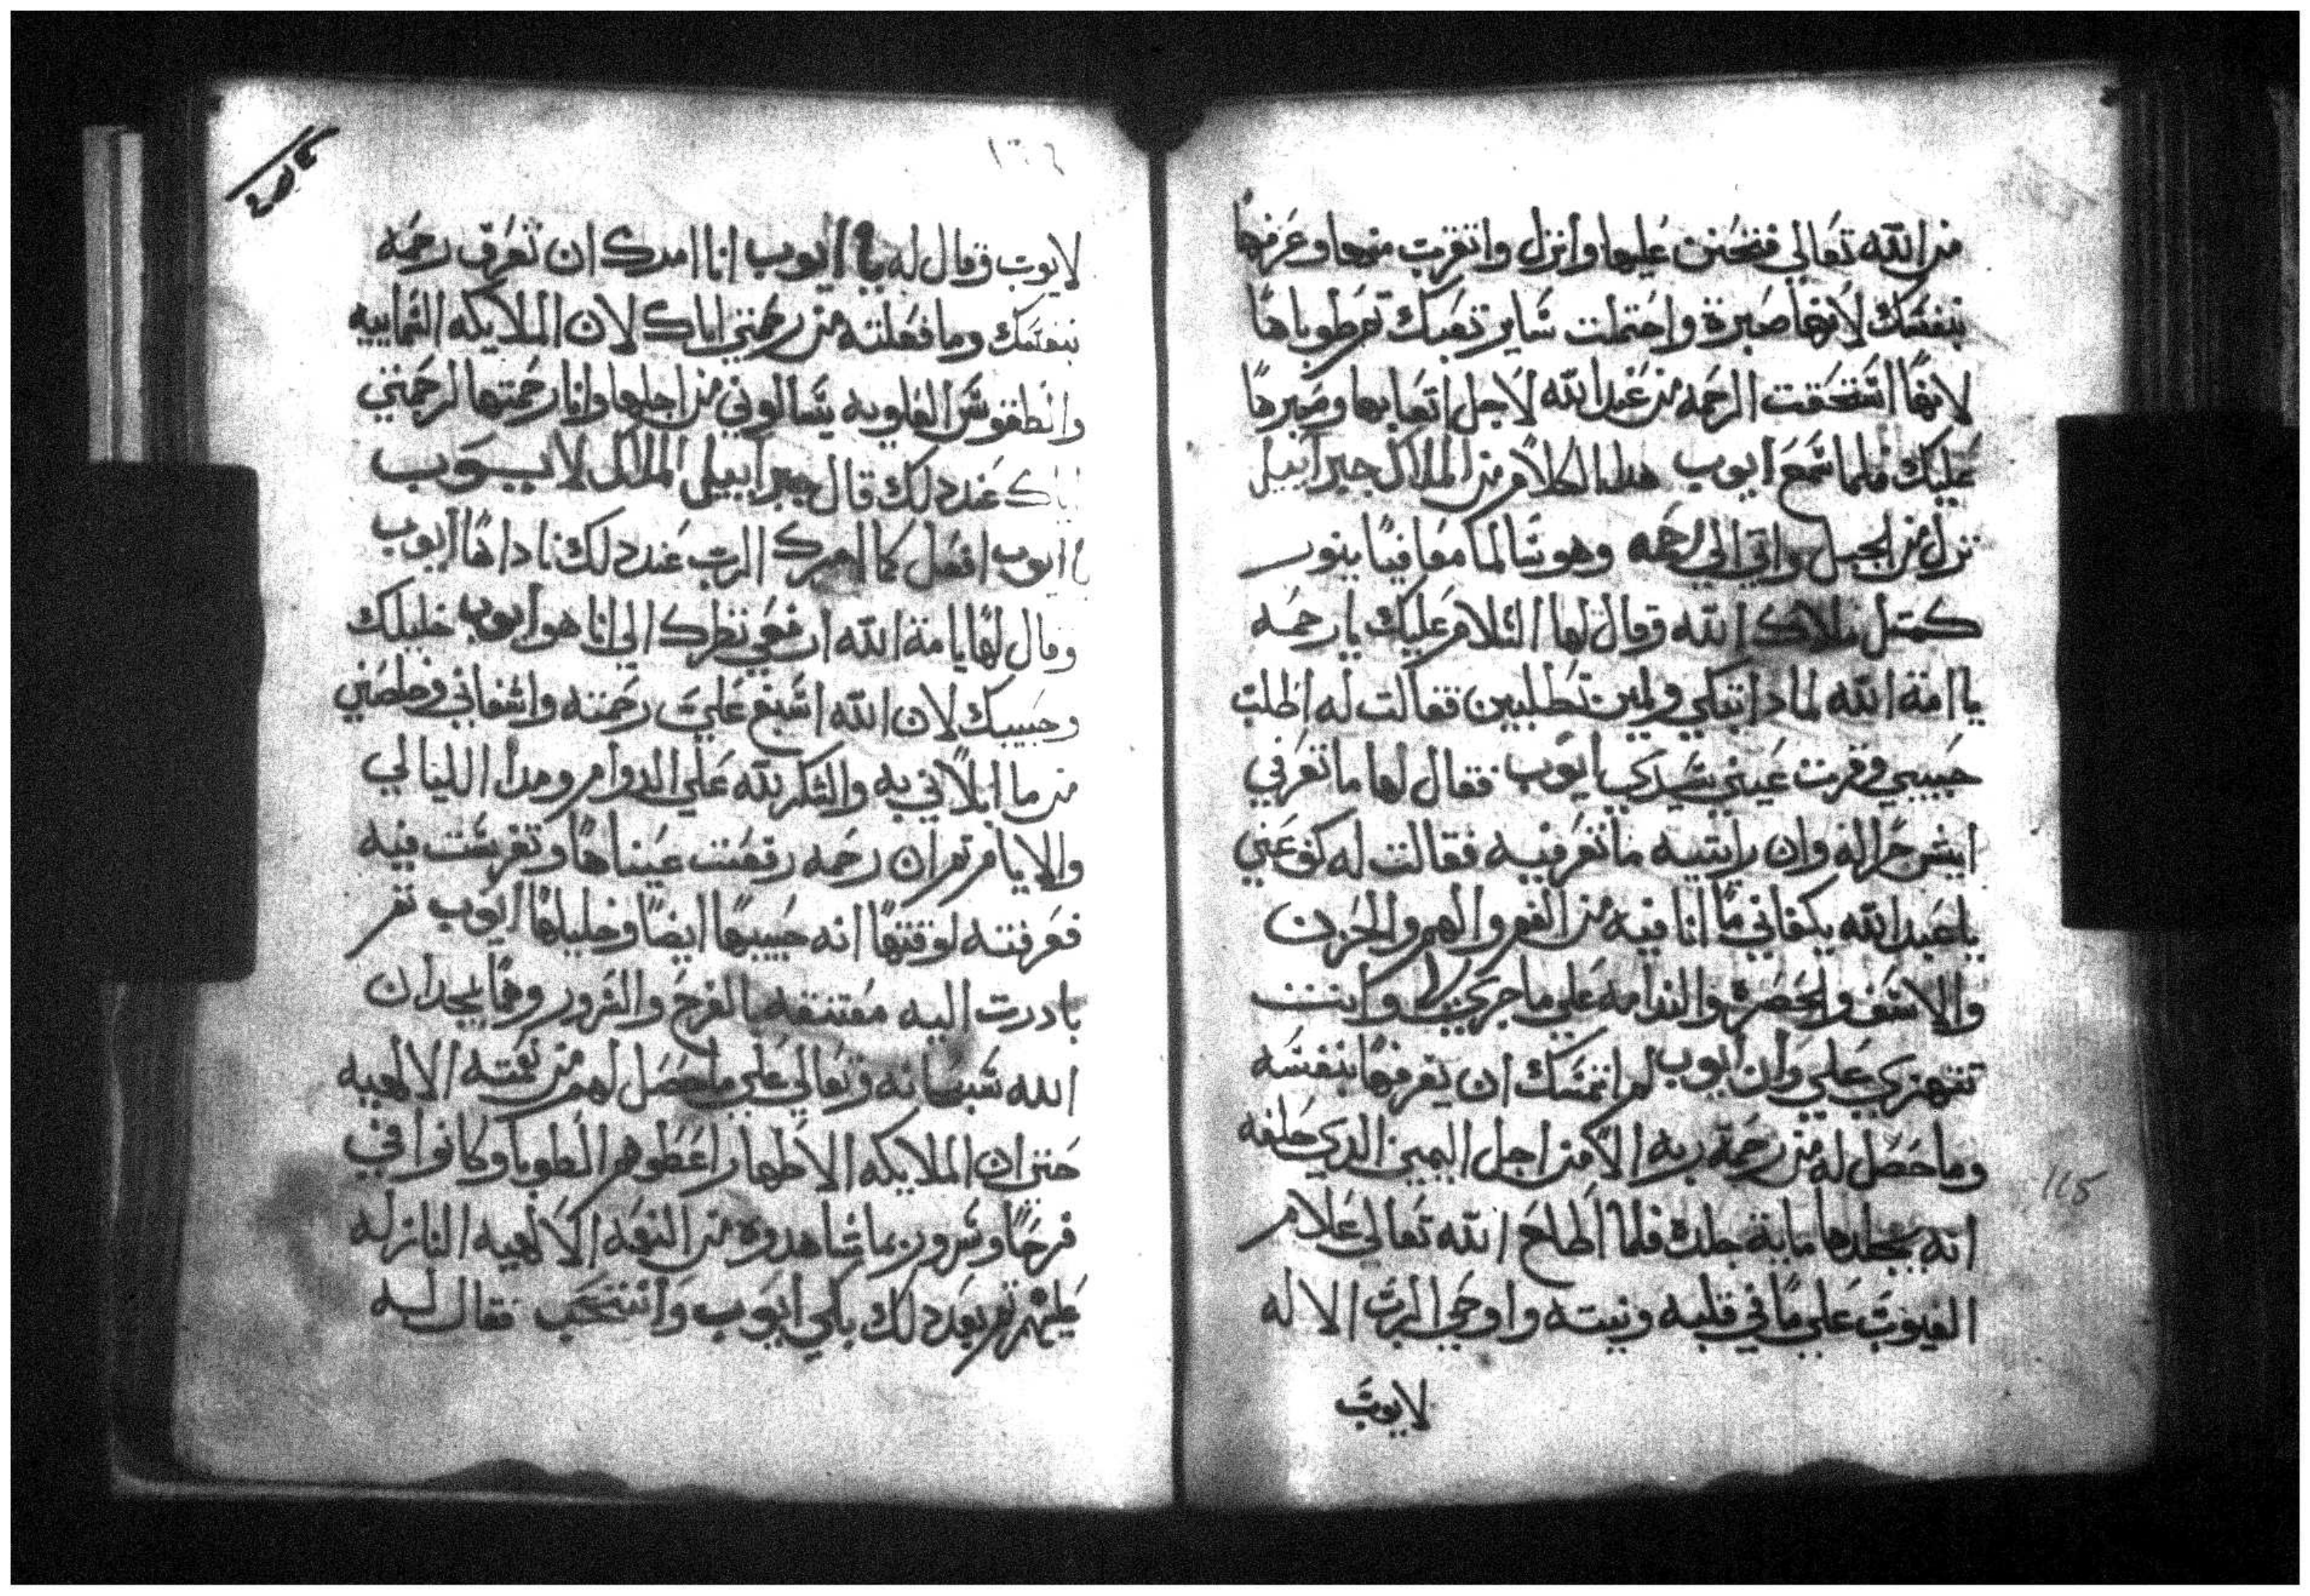 من الله تعالي فتحنن عليها وانزل واتقرب منها وعرفها
بنفسك لانها صبرة واحتملت ساير تعبك ثم طوباها
لانها استحقت الرحمه من عند الله لاجل اتعابها وصبرها
عليك فلما سمع ايوب هدا الكلام من الملاك جبراييل
نزل من الجبل واتي الي رحمه وهو سالما معافيا بنور
كمتل ملاك الله وقال لها السلام عليك يا رحمه
يا امة الله لمادا تبكي ولمن تطلبين فقالت له اطلب
حبيبي وقرت عيني سيدي ايوب فقال لها ما تعرفي
ايش جراله وان رايتيه ما تعرفيه فقالت له كف عني
يا عبد الله يكفاني ما انا فيه من الغم والهم والحزن
والاسف والحصرة والندامه علي ما جري وانت
تتهزي علي وان ايوب لم اتمسك ان يعرفها بنفسه
وما حصل له من رحمة ربه الا من اجل اليمين الدي حلفه
انه يجلدها ماية جلده فلما اطاع الله تعالي علام
الغيوب علي ما في قلبه ونيته واوحي الرب الاله
لايوب
115
١٦٤
لايوب وقال له يا ايوب انا امرك ان تعرف رحمه
بنفسك وما فعلته من رحمتي اياك لان الملايكه السماييه
والطقوس العلويه يسالوني من اجلها وانا رحمتها لرحمتي
اياك عند دلك قال جبراييل الملاك لايوب
يا ايوب افعل كما امرك الرب عند دلك ناداها ايوب
وقال لها يا امة الله ارفعي نظرك الي انا هو ايوب خليلك
وحبيبك لان الله اسبغ علي رحمته واشفاني وخلصني
من ما ابلاني به والشكر لله علي الدوام ومدا الليالي
والايام تم ان رحمه رفعت عيناها وتفرست فيه
فعرفته لوقتها انه حبيبها ايضا وخليلها ايوب تم
بادرت اليه معتنقه بالفرح والسرور وهما يمجدان
الله سبحانه وتعالي علي ما حصل لهم من نعمته الالهيه
حتي ان الملايكه الاطهار اعطوهم الطوبا وكانوا في
فرحا وسرور بما شاهدوه من النعمه الالهيه النازله
عليهم تم بعد دلك بكي ايوب وانتحب فقال له